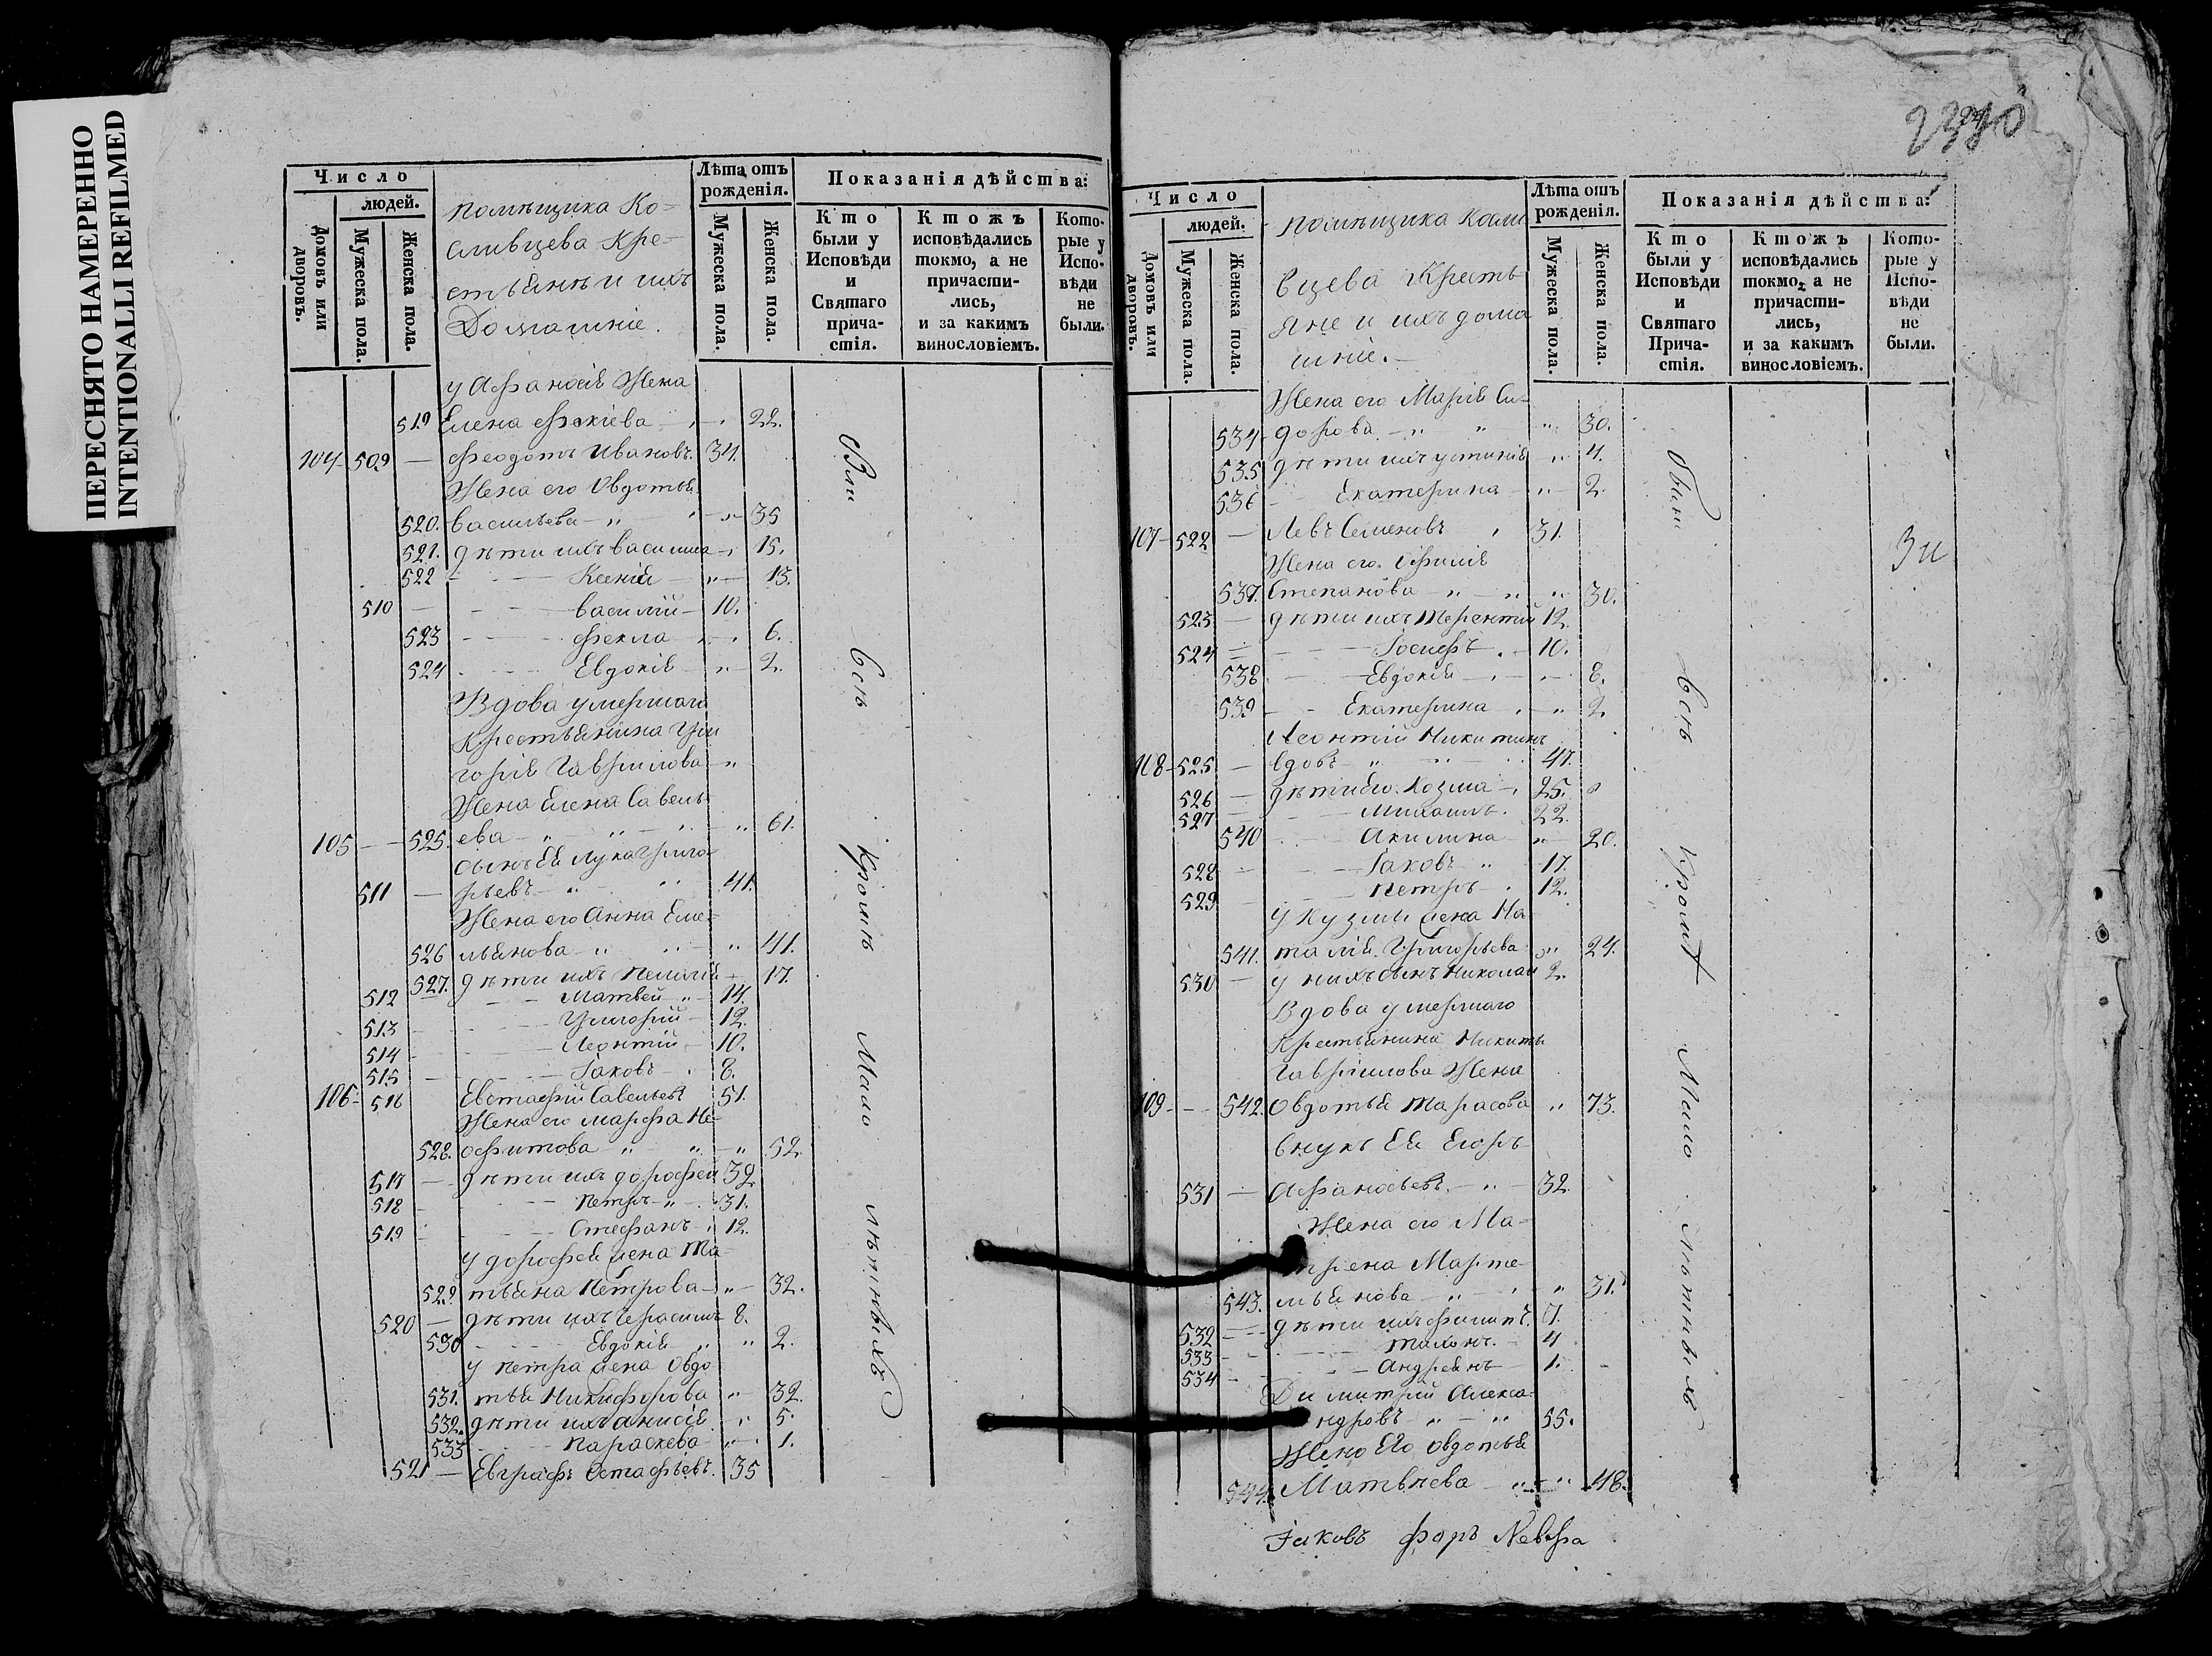 ПЕРЕСНЯТО НАМЕРЕННО
INTENTIONALLI REFILMED
Число
людей.
Домовъ или дворовъ.
Мужеска пола.
Женска пола.
помѣщика Ко=
сливцева Кре=
стьянѣ и ихъ
Домашніе.
Лѣта отъ рожденія.
Мужеска пола.
Женска пола.
Показанія дѣйства:
Кто были у Исповѣди и Святаго причастія.
Ктожъ исповѣдались токмо, а не причастились, и за какимъ винословіемъ.
Которые у Исповѣди не были.
у Афанасія Жена
519 Елена Фокіева 22.
104 509 Феодотъ Ивановъ. 34.
Жена его Овдотья
520. васильева 35
521. дѣти ихъ василиса 15.
522 Ксенія 13.
510 василій 10.
523 Фекла 6.
524 Евдокія 2.
Вдова умершаго
Крестьянина Гри
горія Гаврилова
Жена Елена Савель
105 525. ева 61.
сынъ Ея Лука Григо=
511 рьевъ 41.
Жена его Анна Еме=
526 льянова 41.
527. дѣти ихъ Пелагія 17.
512 Матвей 14.
513 Григорій 12.
514 Леонтій 10.
515 Іаковъ 8.
106 516 Евстафій Савельевъ 51.
Жена его марфа Не=
528. офитова 52
517 дѣти ихъ дорофей 32
518 Петръ 31.
519 Стефанъ 12.
У дорофея жена Та
529 тьяна Петрова 32.
520 дѣти ихъ Герасимъ 8.
530 Евдокія 2.
у петра жена Овдо
531. тья Никифорова 32.
532. дѣти ихъ анисія 5.
533 параскева 1.
521 Евграфъ Остафьевъ. 35
Вси всѣ кромѣ мало лѣтныхъ
Число
людей.
Домовъ или дворовъ.
Мужеска пола.
Женска пола.
помѣщика Косли
вцева Кресть
яне и ихъ дома
шніе.
Лѣта отъ рожденія.
Мужеска пола.
Женска пола.
Показанія дѣйства:
Кто были у Исповѣди и Святаго Причастія.
Ктожъ исповѣдались токмо, а не причастились, и за какимъ винословіемъ.
Которые у Исповѣди не были.
Жена его Марія Си=
534 дорова 30.
535 дѣти ихъ устинія 4.
536 Екатерина 2.
107 522 Левъ Семеновъ 31.
Жена его Офимія
537. Степанова 30.
523 дѣти ихъ Терентій 12.
524 Іосифъ 10.
538 Евдокія 8.
539 Екатерина 2.
Леонтій Никитинъ
108 525 вдовъ 47.
526 дѣти его Козма 25.
527 Михаилъ 22.
540 Акилина 20.
528 Іаковъ 17.
529 Петръ 12.
У Кузмы жена На
541. талія Григорьева 24.
530 у нихъ сынъ Николай 2.
Вдова умершаго
Крестьянина Никиты
Гаврилова Жена
109 542. Овдотья Тарасова 73.
внукъ Ея Егоръ
531 Афанасьевъ 32.
Жена его Ма=
трена Марте=
543. мьянова 31.
532 дѣти ихъ филипъ. 7.
533 4
534 Андреянъ 1.
Димитрій Алекса=
ндровъ 55.
Жена Его Овдотья
544. Матвѣева 48.
были всѣ кромѣ мало лѣтныхъ
Іаковъ